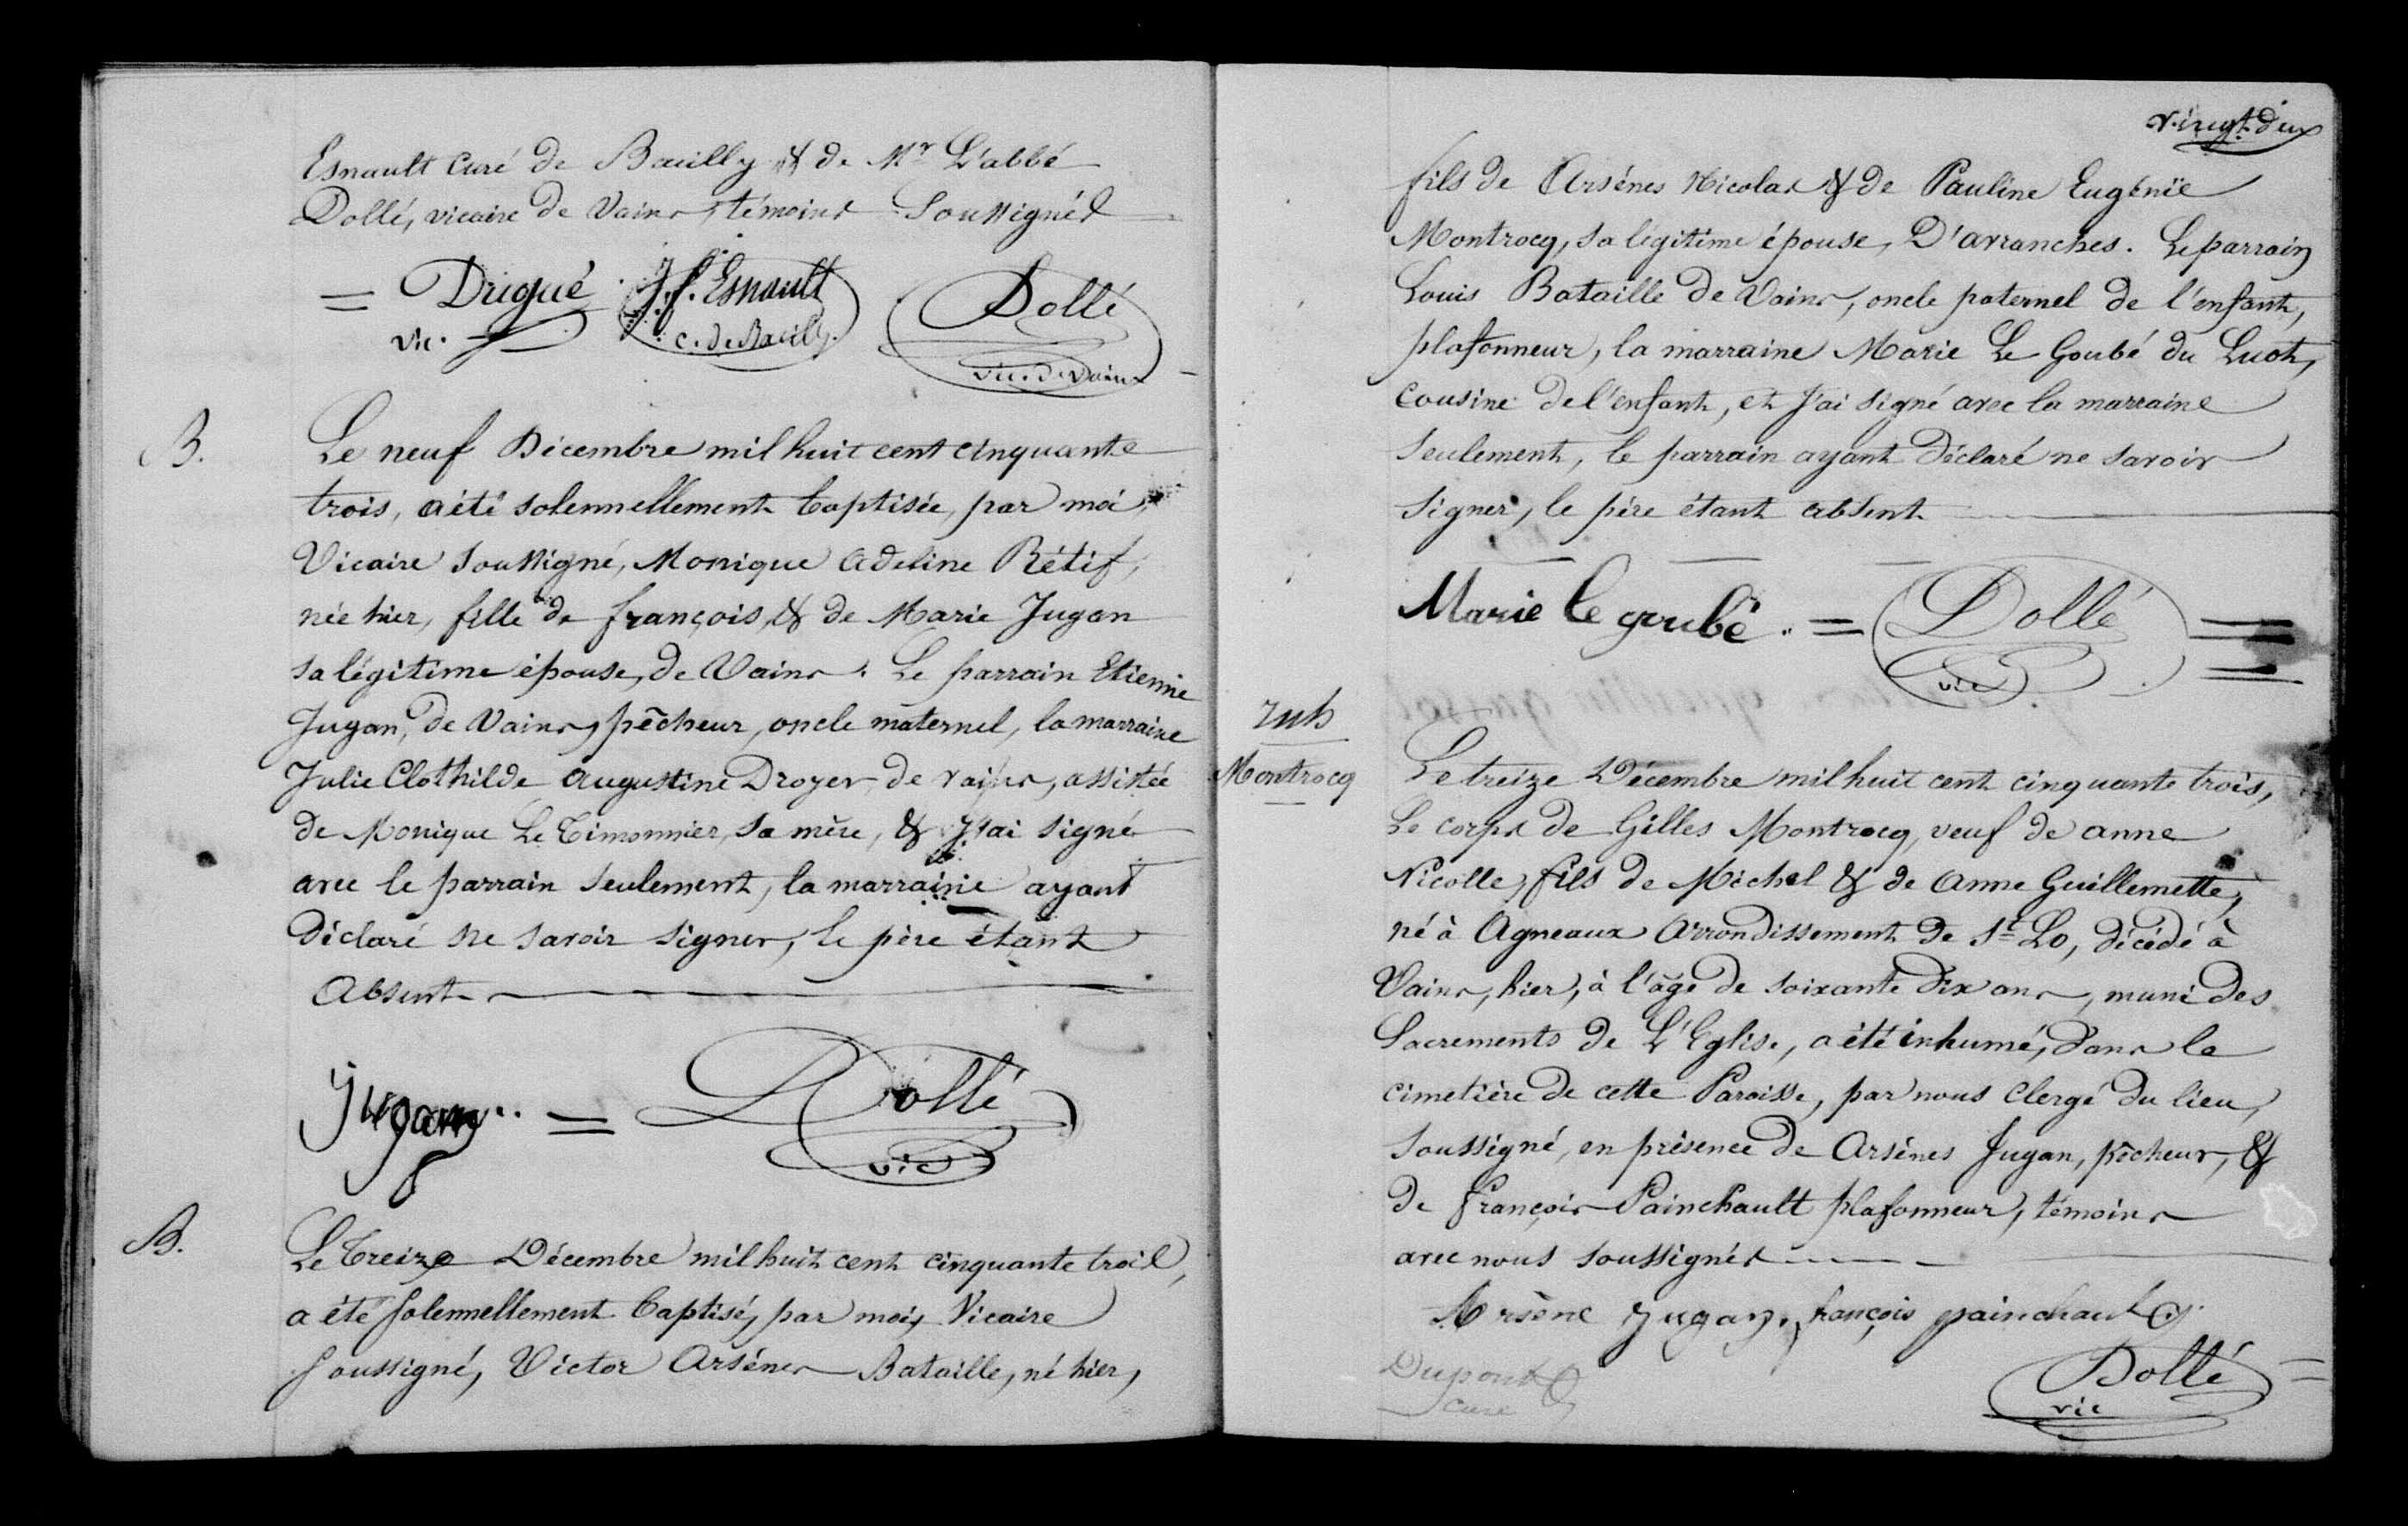 Esnault Curé de Bacilly & de Mr L'abbé
Dollé, vicaire de Vains, témoins Soussignés
= Dugué J. f. Esnault Dollé
vic. c. de Bacilly vic. de Vains
B. Le neuf Décembre mil huit cent cinquante
trois, a été solennellement baptisée, par moi
Vicaire soussigné, Monique Adeline Rétif,
née hier, fille de françois, & de Marie Jugan
sa légitime épouse, de Vains. Le parrain Etienne
Jugan, de Vains, pêcheur, oncle maternel, la marraine
Julie Clothilde Augustine Droyer de vains, assistée
de Monique Le Timonnier, sa mère, & J'ai signé
avec le parrain seulement, la marraine ayant
déclaré ne savoir signer, le père étant
Absent
Jugan = Dollé
vic
B. Le treize Décembre mil huit cent cinquante trois,
a été solennellement baptisé, par moi, Vicaire
soussigné, Victor Arsènes Bataille, né hier,
vingt-deux
fils de Arsénes Nicolas & de Pauline Eugénie
Montrocq, sa légitime épouse, D'avranches. Le parrain
Louis Bataille de Vains, oncle paternel de l'enfant,
plafonneur, la marraine Marie Le Goubé du Luot,
cousine de l'enfant, et J'ai signé avec la marraine
seulement, le parrain ayant déclaré ne savoir
signer, le père étant absent
Marie le goubé = Dollé =
vic
Inh
Montrocq
Le treize Décembre mil huit cent cinquante trois,
Le corps de Gilles Montrocq, veuf de anne
Nicolle, fils de Michel & de Anne Guillemette,
né à Agneaux Arrondissement de St Lo, décédé à
Vains, hier, à l'âge de soixante dix ans, muni des
Sacrements de L'Eglise, a été inhumé, dans le
cimetière de cette Paroisse, par nous Clergé du lieu,
soussigné, en présence de Arsènes Jugan, pêcheur, &
de françois Painchault plafonneur, témoins
avec nous soussignés
Arsène Jugan, françois painchault
Dupont Dollé =
curé vic